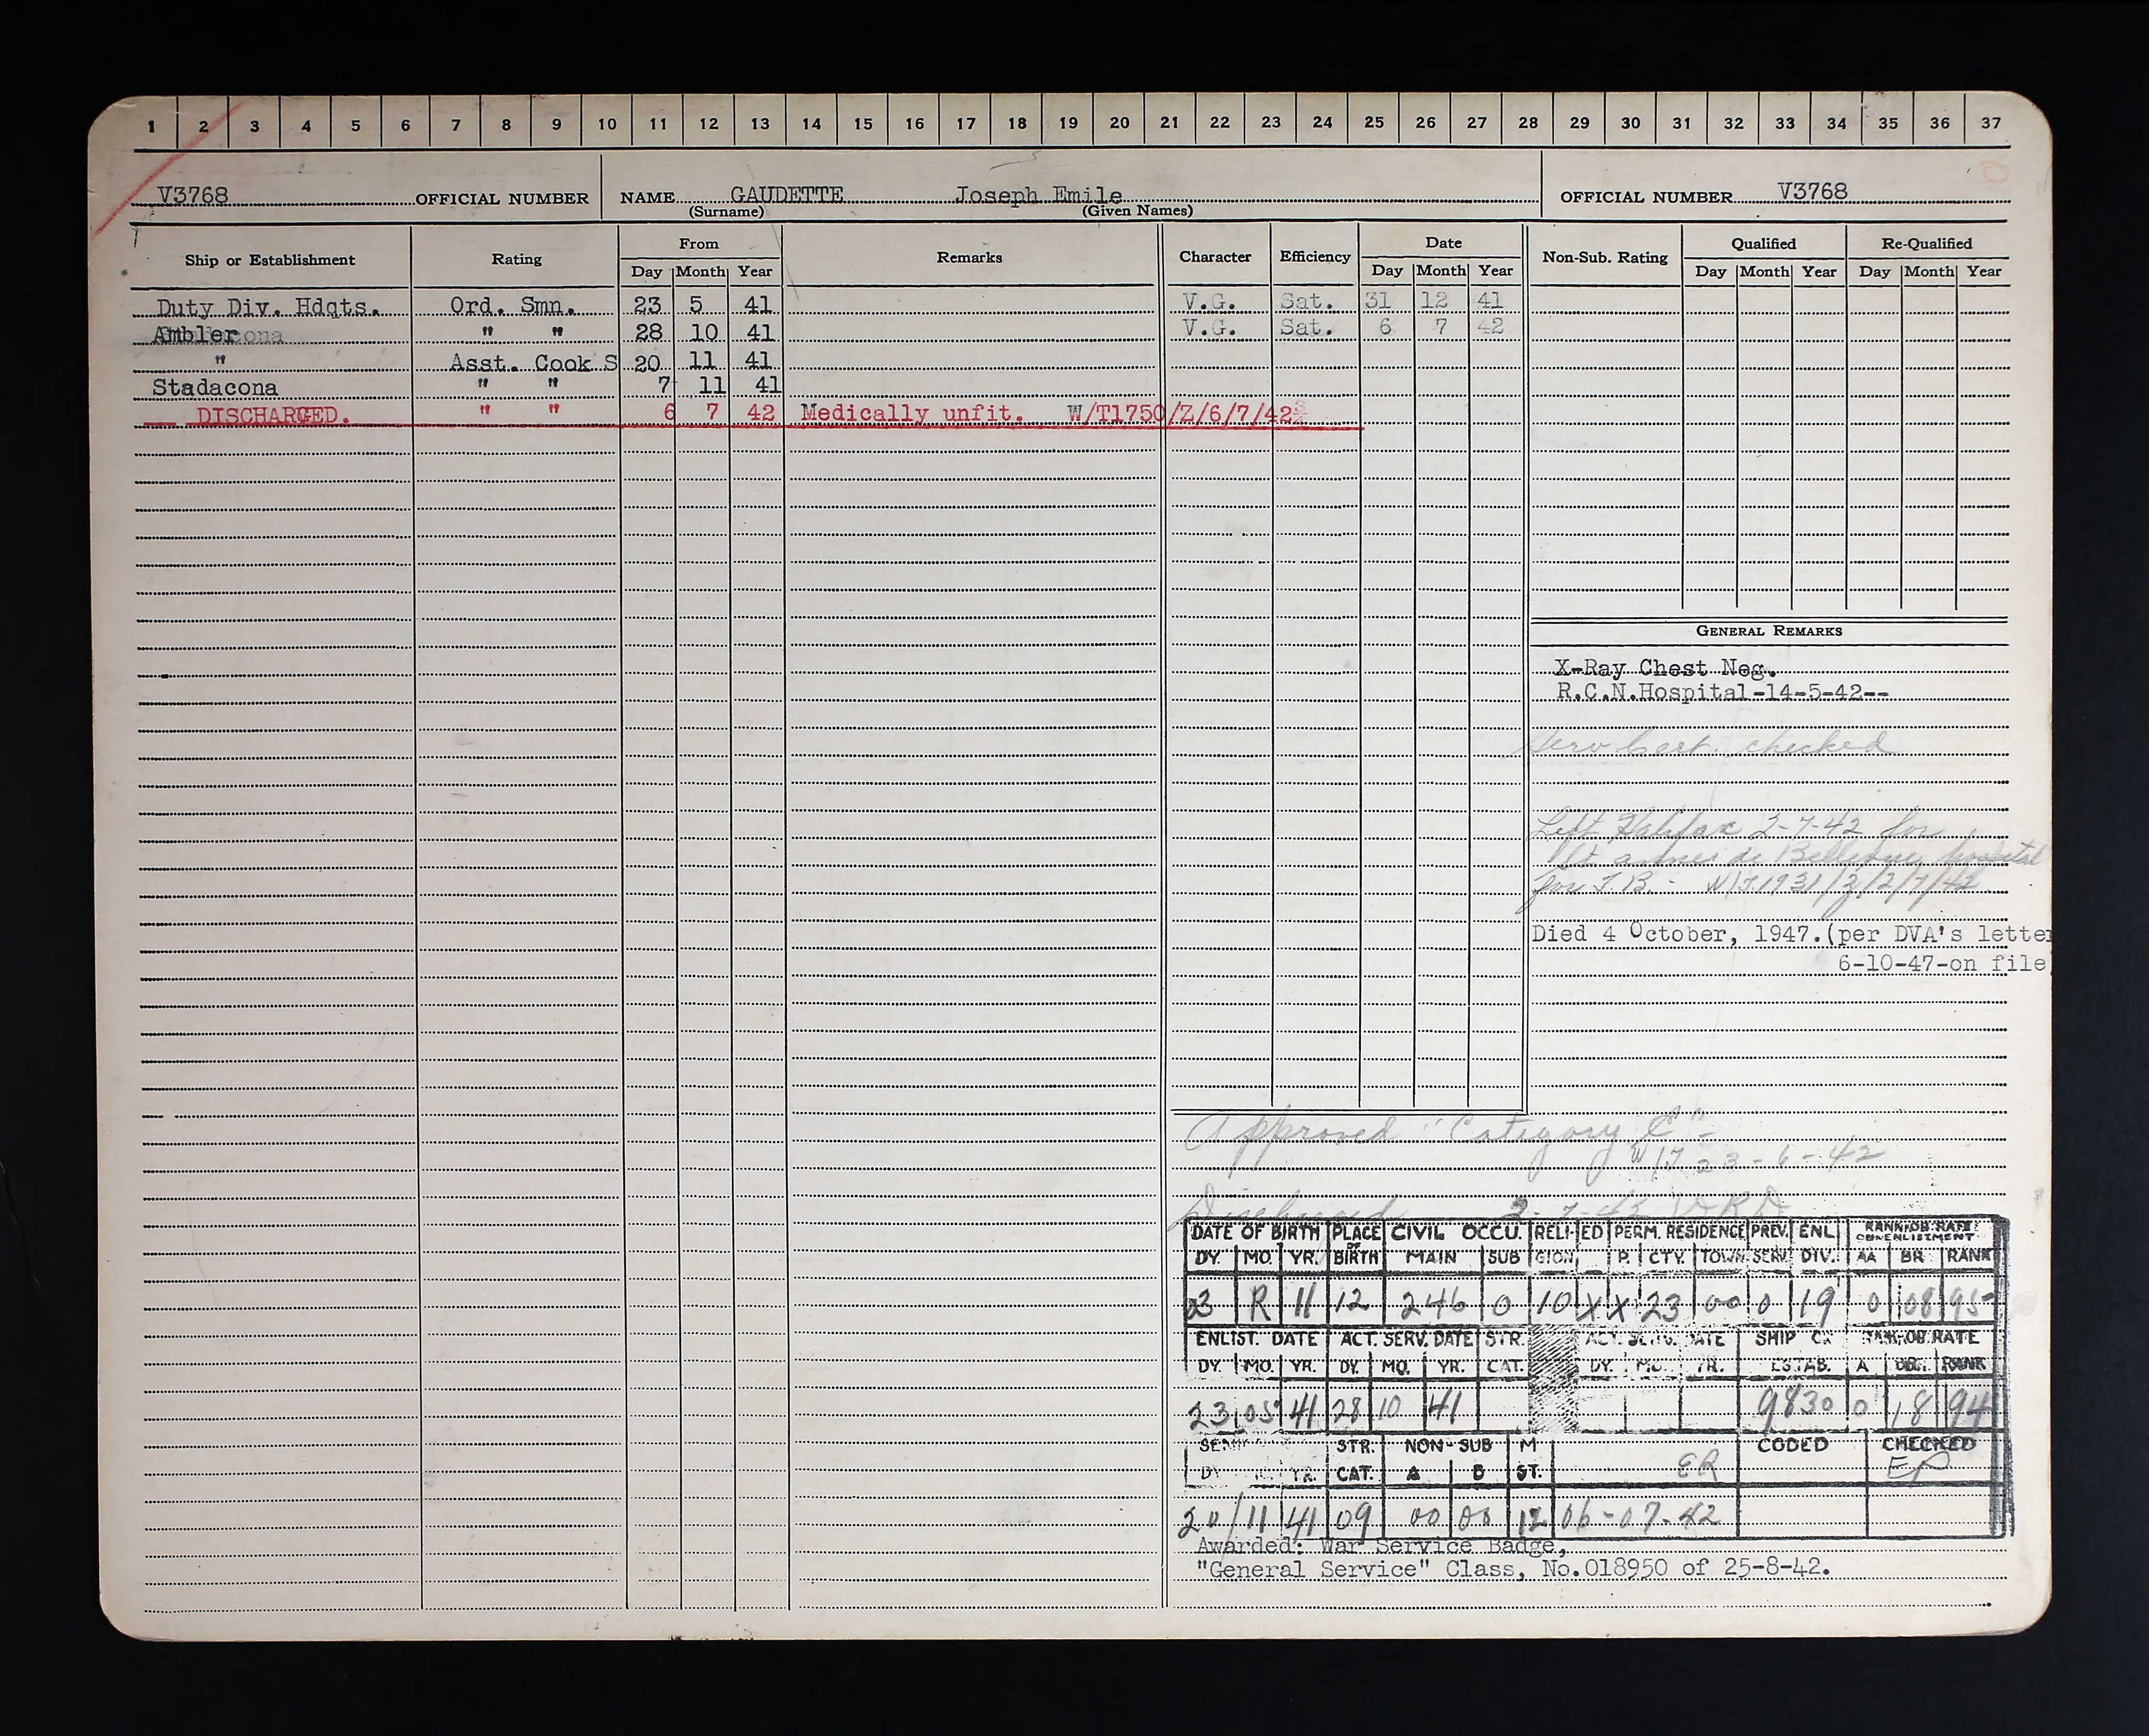 1 2 3 4 5 6 7 8 9 10 11 12 13 14 15 16 17 18 19 20 21 22 23 24 25 26 27 28 29 30 31 32 33 34 35 36 37
V3768 OFFICIAL NUMBER NAME GAUDETTE Joseph Emile OFFICIAL NUMBER V3768
(Surname) (Given Names)
Ship or Establishment Rating From Remarks Character Efficiency Date Non-Sub. Rating Qualified Re-Qualified
Day Month Year Day Month Year Day Month Year Day Month Year
Duty Div. Hdqts. Ord. Smn. 23 5 41 V.G. Sat. 31 12 41
Ambler " " 28 10 41 V.G. Sat. 6 7 42
" Asst. Cook S 20 11 41
Stadacona " " 7 11 41
DISCHARGED. " " 6 7 42 Medically unfit. W/T1750/Z/6/7/42
GENERAL REMARKS
X-Ray Chest Neg.
R.C.N.Hospital-14-5-42--
Serv. Cert. checked
Left Halifax 2-7-42 for
St annes de Bellevue hospital
for T.B. - W/T.1931/Z/2/7/42
Died 4 October, 1947.(per DVA's letter
6-10-47-on file
Approved "Category E"
W/T 23-6-42
Discharged 2-7-42
DATE OF BIRTH PLACE OF BIRTH CIVIL OCCU. RELIGION ED PERM. RESIDENCE PREV. SERV. ENL. DIV. RANK OR RATE ON ENLISTMENT
DY. MO. YR. MAIN SUB P. CTY. TOWN AA BR RANK
23 R 11 12 246 0 10 X X 23 00 0 19 0 08 95
ENLIST. DATE ACT. SERV. DATE STR. ACT. SERV. DATE SHIP OR RANK OR RATE
DY. MO. YR. DY. MO. YR. CAT. DY. MO. YR. ESTAB. A BR. RANK
23 05 41 28 10 41 9830 0 18 94
STR. NON-SUB M CODED CHECKED
DY YR. CAT. A B ST. ER EP
20 11 41 09 00 00 12 06-07-42
Awarded: War Service Badge,
"General Service" Class, No.018950 of 25-8-42.